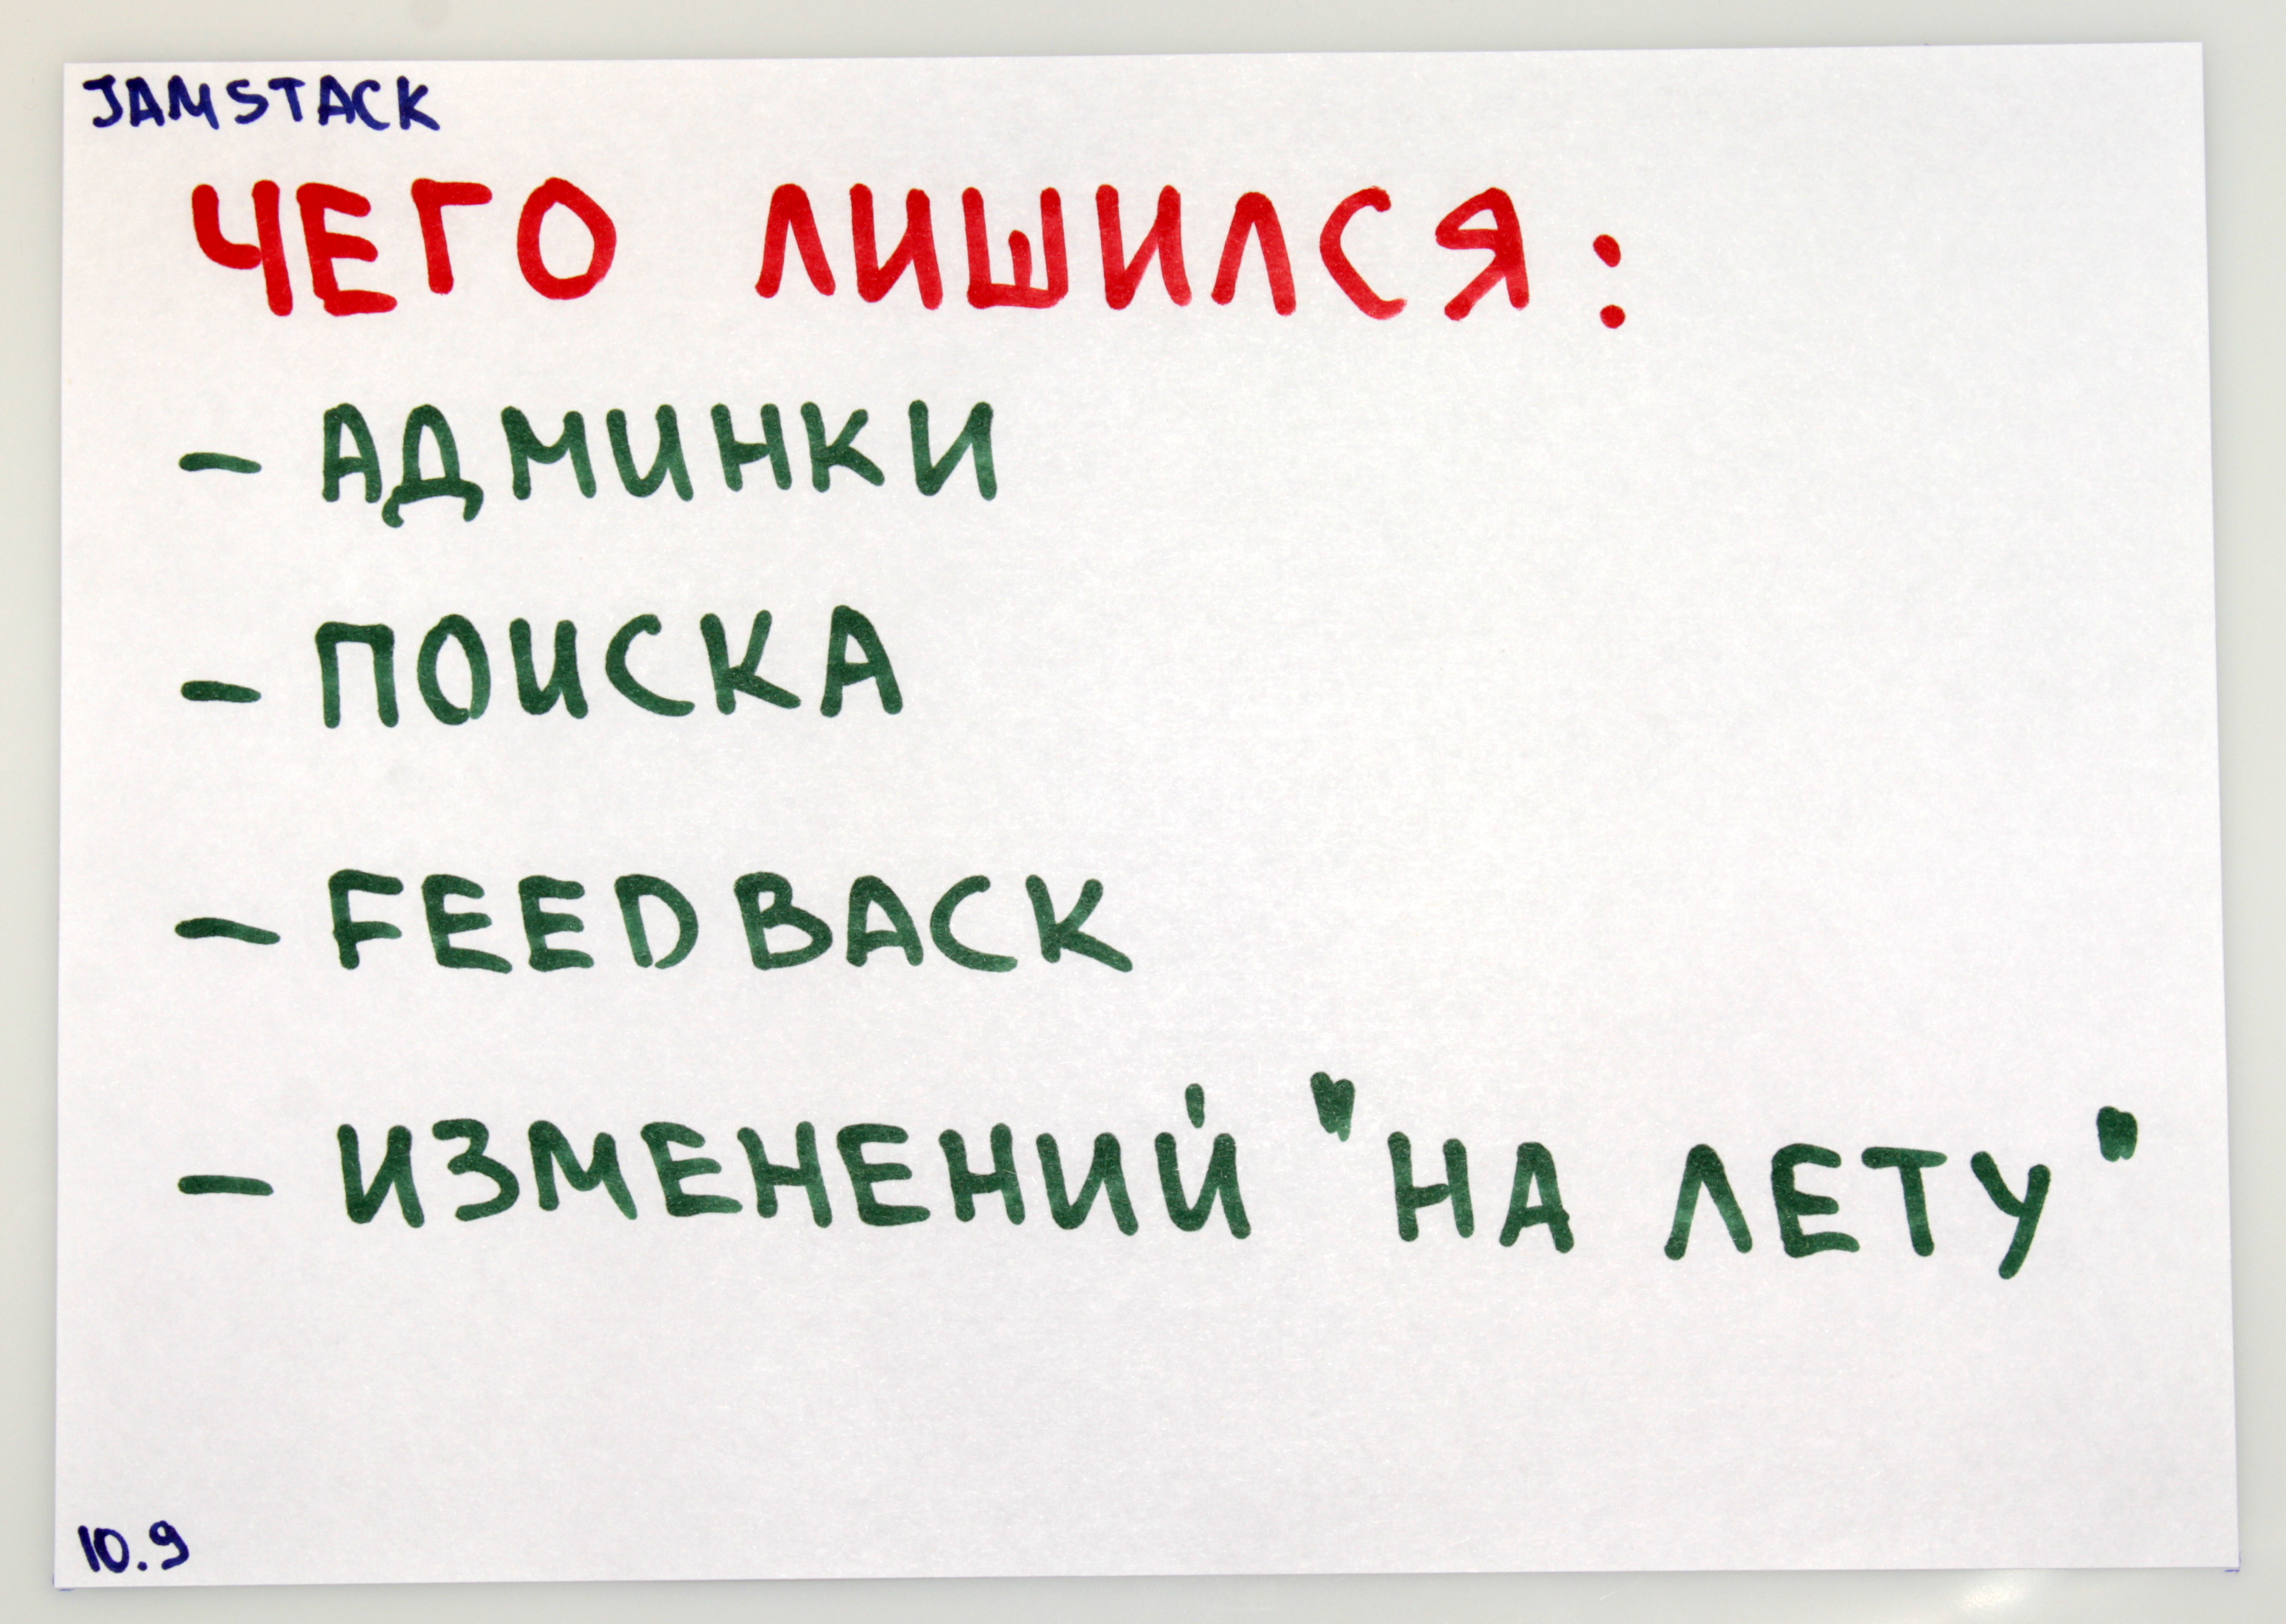 JAMSTACK
ЧЕГО ЛИШИЛСЯ:
- АДМИНКИ
- ПОИСКА
- FEEDBACK
- ИЗМЕНЕНИЙ "НА ЛЕТУ"
10.9